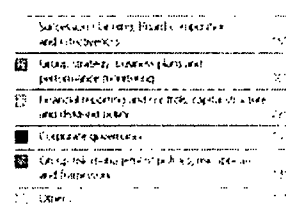 Succession planning, Board composition
and effectiveness
Group strategy, business plans and
performance monitoring
Financial reporting and controls, capital structure
and dividend policy
Corporate governance
Group risk management policies, risk appetite
and framework
Other